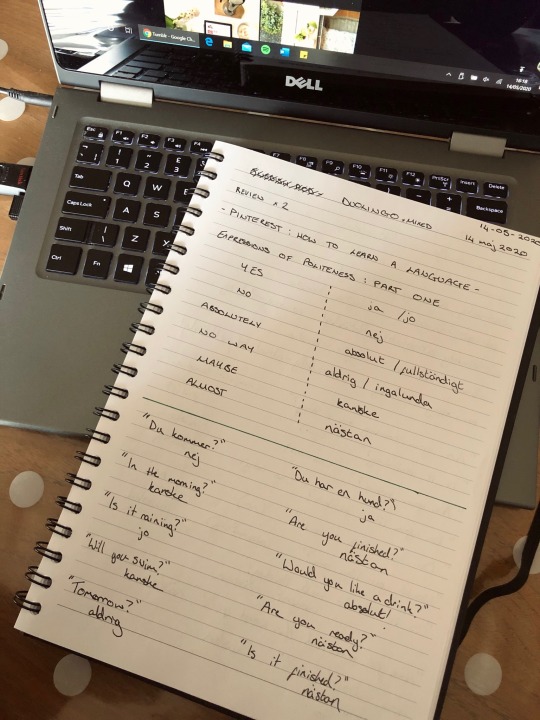 Tumblr - Google Ch...
16:18
14/05/2020
DELL
Esc F1 F2 F3 F4 F8 F9 F10 F11 F12 PrtScr Insert Delete
1 2 3 Backspace
Tab Q W E
Caps Lock A S
Shift \ Z X
Ctrl Fn
DUOLINGO + MIXED 14-05-2020
REVIEW x2 14 maj 2020
- PINTEREST : HOW TO LEARN A LANGUAGE -
EXPRESSIONS OF POLITENESS : PART ONE
YES ja / jo
NO nej
ABSOLUTELY absolut / fullständigt
NO WAY aldrig / ingalunda
MAYBE kanske
ALMOST nästan
"Du kommer?"
nej
"In the morning?"
kanske
"Is it raining?"
jo
"Will you swim?"
kanske
"Tomorrow?"
aldrig
"Du har en hund?"
ja
"Are you finished?"
nästan
"Would you like a drink?"
absolut!
"Are you ready?"
nästan
"Is it finished?"
nästan